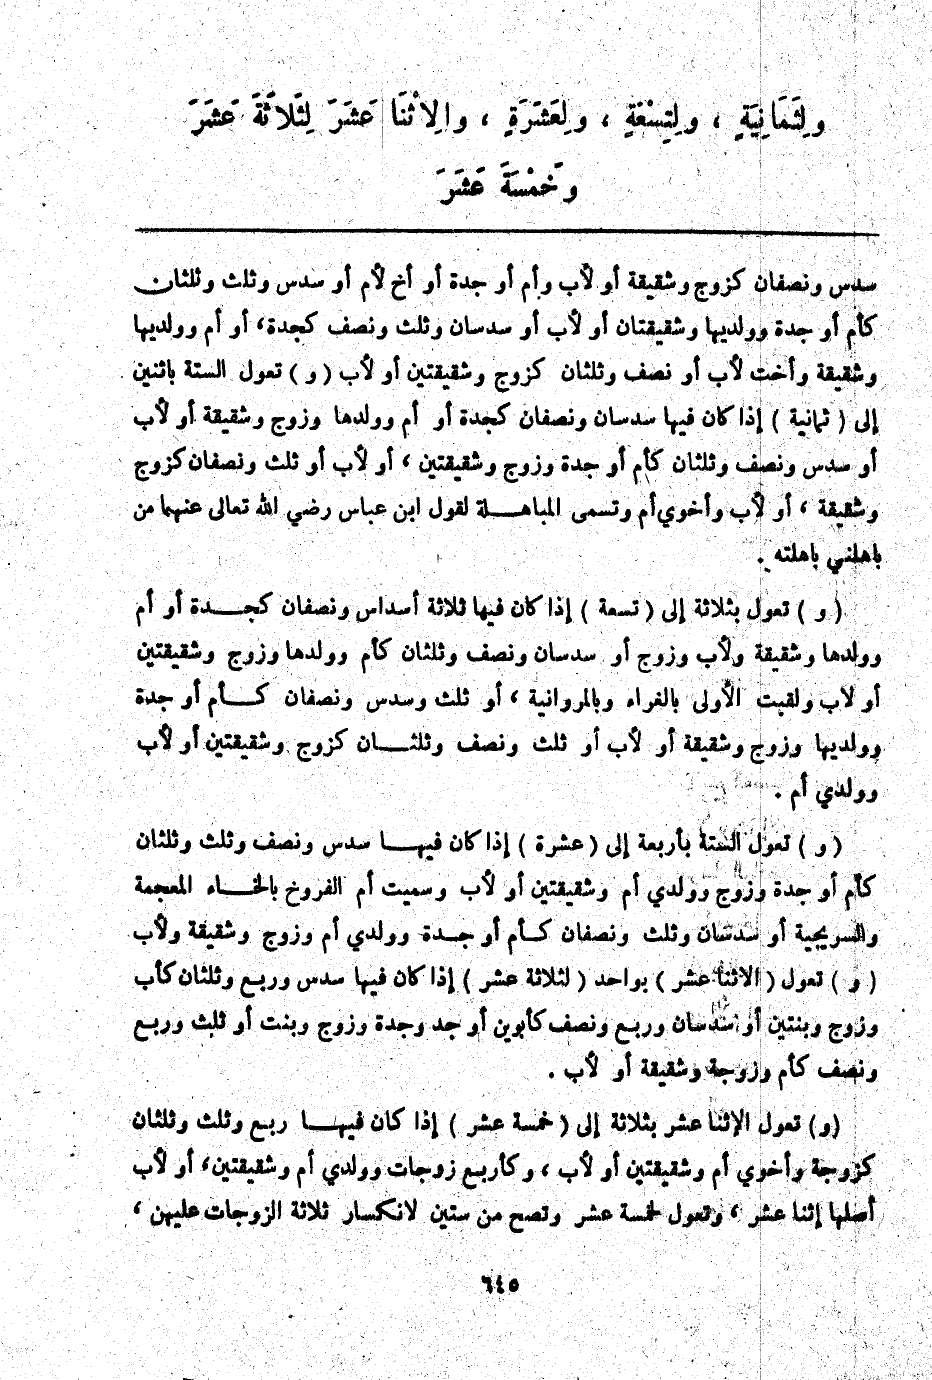 ولِثَمَانِيَةٍ ، ولِتِسْعَةٍ ، ولِعَشَرَةٍ ، والِاثْنَا عَشَرَ لِثَلاثَةَ عَشَرَ
وخَمْسَةَ عَشَرَ
سدس ونصفان كزوج وشقيقة أو لأب وأم أو جدة أو أخ لأم أو سدس وثلث وثلثان
كأم أو جدة وولديها وشقيقتان أو لأب أو سدسان وثلث ونصف كجدة، أو أم وولديها
وشقيقة وأخت لأب أو نصف وثلثان كزوج وشقيقتين أو لأب ( و ) تعول الستة باثنين
إلى ( ثمانية ) إذا كان فيها سدسان ونصفان كجدة أو أم وولدها وزوج وشقيقة أو لأب
أو سدس ونصف وثلثان كأم أو جدة وزوج وشقيقتين ، أو لأب أو ثلث ونصفان كزوج
وشقيقة ، أو لأب وأخوي أم وتسمى المباهلة لقول ابن عباس رضي الله تعالى عنهما من
باهلني باهلته .
( و ) تعول بثلاثة إلى ( تسعة ) إذا كان فيها ثلاثة أسداس ونصفان كجدة أو أم
وولدها وشقيقة ولأب وزوج أو سدسان ونصف وثلثان كأم وولدها وزوج وشقيقتين
أو لاب ولقبت الأولى بالغراء وبالمروانية ، أو ثلث وسدس ونصفان كأم أو جدة
وولديها وزوج وشقيقة أو لأب أو ثلث ونصف وثلثان كزوج وشقيقتين أو لأب
وولدي أم .
( و ) تعول الستة بأربعة إلى ( عشرة ) إذا كان فيها سدس ونصف وثلث وثلثان
كأم أو جدة وزوج وولدي أم وشقيقتين أو لأب وسميت أم الفروخ بالخاء المعجمة
والسريجية أو سدسان وثلث ونصفان كأم أو جدة وولدي أم وزوج وشقيقة ولأب
( و ) تعول ( الاثنا عشر ) بواحد ( لثلاثة عشر ) إذا كان فيها سدس وربع وثلثان كأب
وزوج وبنتين أو سدسان وربع ونصف كأبوين أو جد وجدة وزوج وبنت أو ثلث وربع
ونصف كأم وزوجة وشقيقة أو لأب .
(و) تعول الإثنا عشر بثلاثة إلى ( خمسة عشر ) إذا كان فيها ربع وثلث وثلثان
كزوجة وأخوي أم وشقيقتين أو لأب ، وكأربع زوجات وولدي أم وشقيقتين، أو لأب
أصلها إثنا عشر ، وتعول لخمسة عشر وتصح من ستين لانكسار ثلاثة الزوجات عليهن ،
٦٤٥